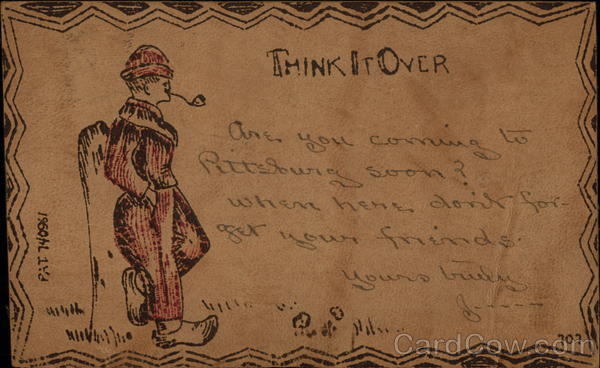 THINK IT OVER
Are you coming to
Pittsburg soon?
when here don't for-
get your friends.
yours truly
J-----
PAT 740981
202
CardCow.com